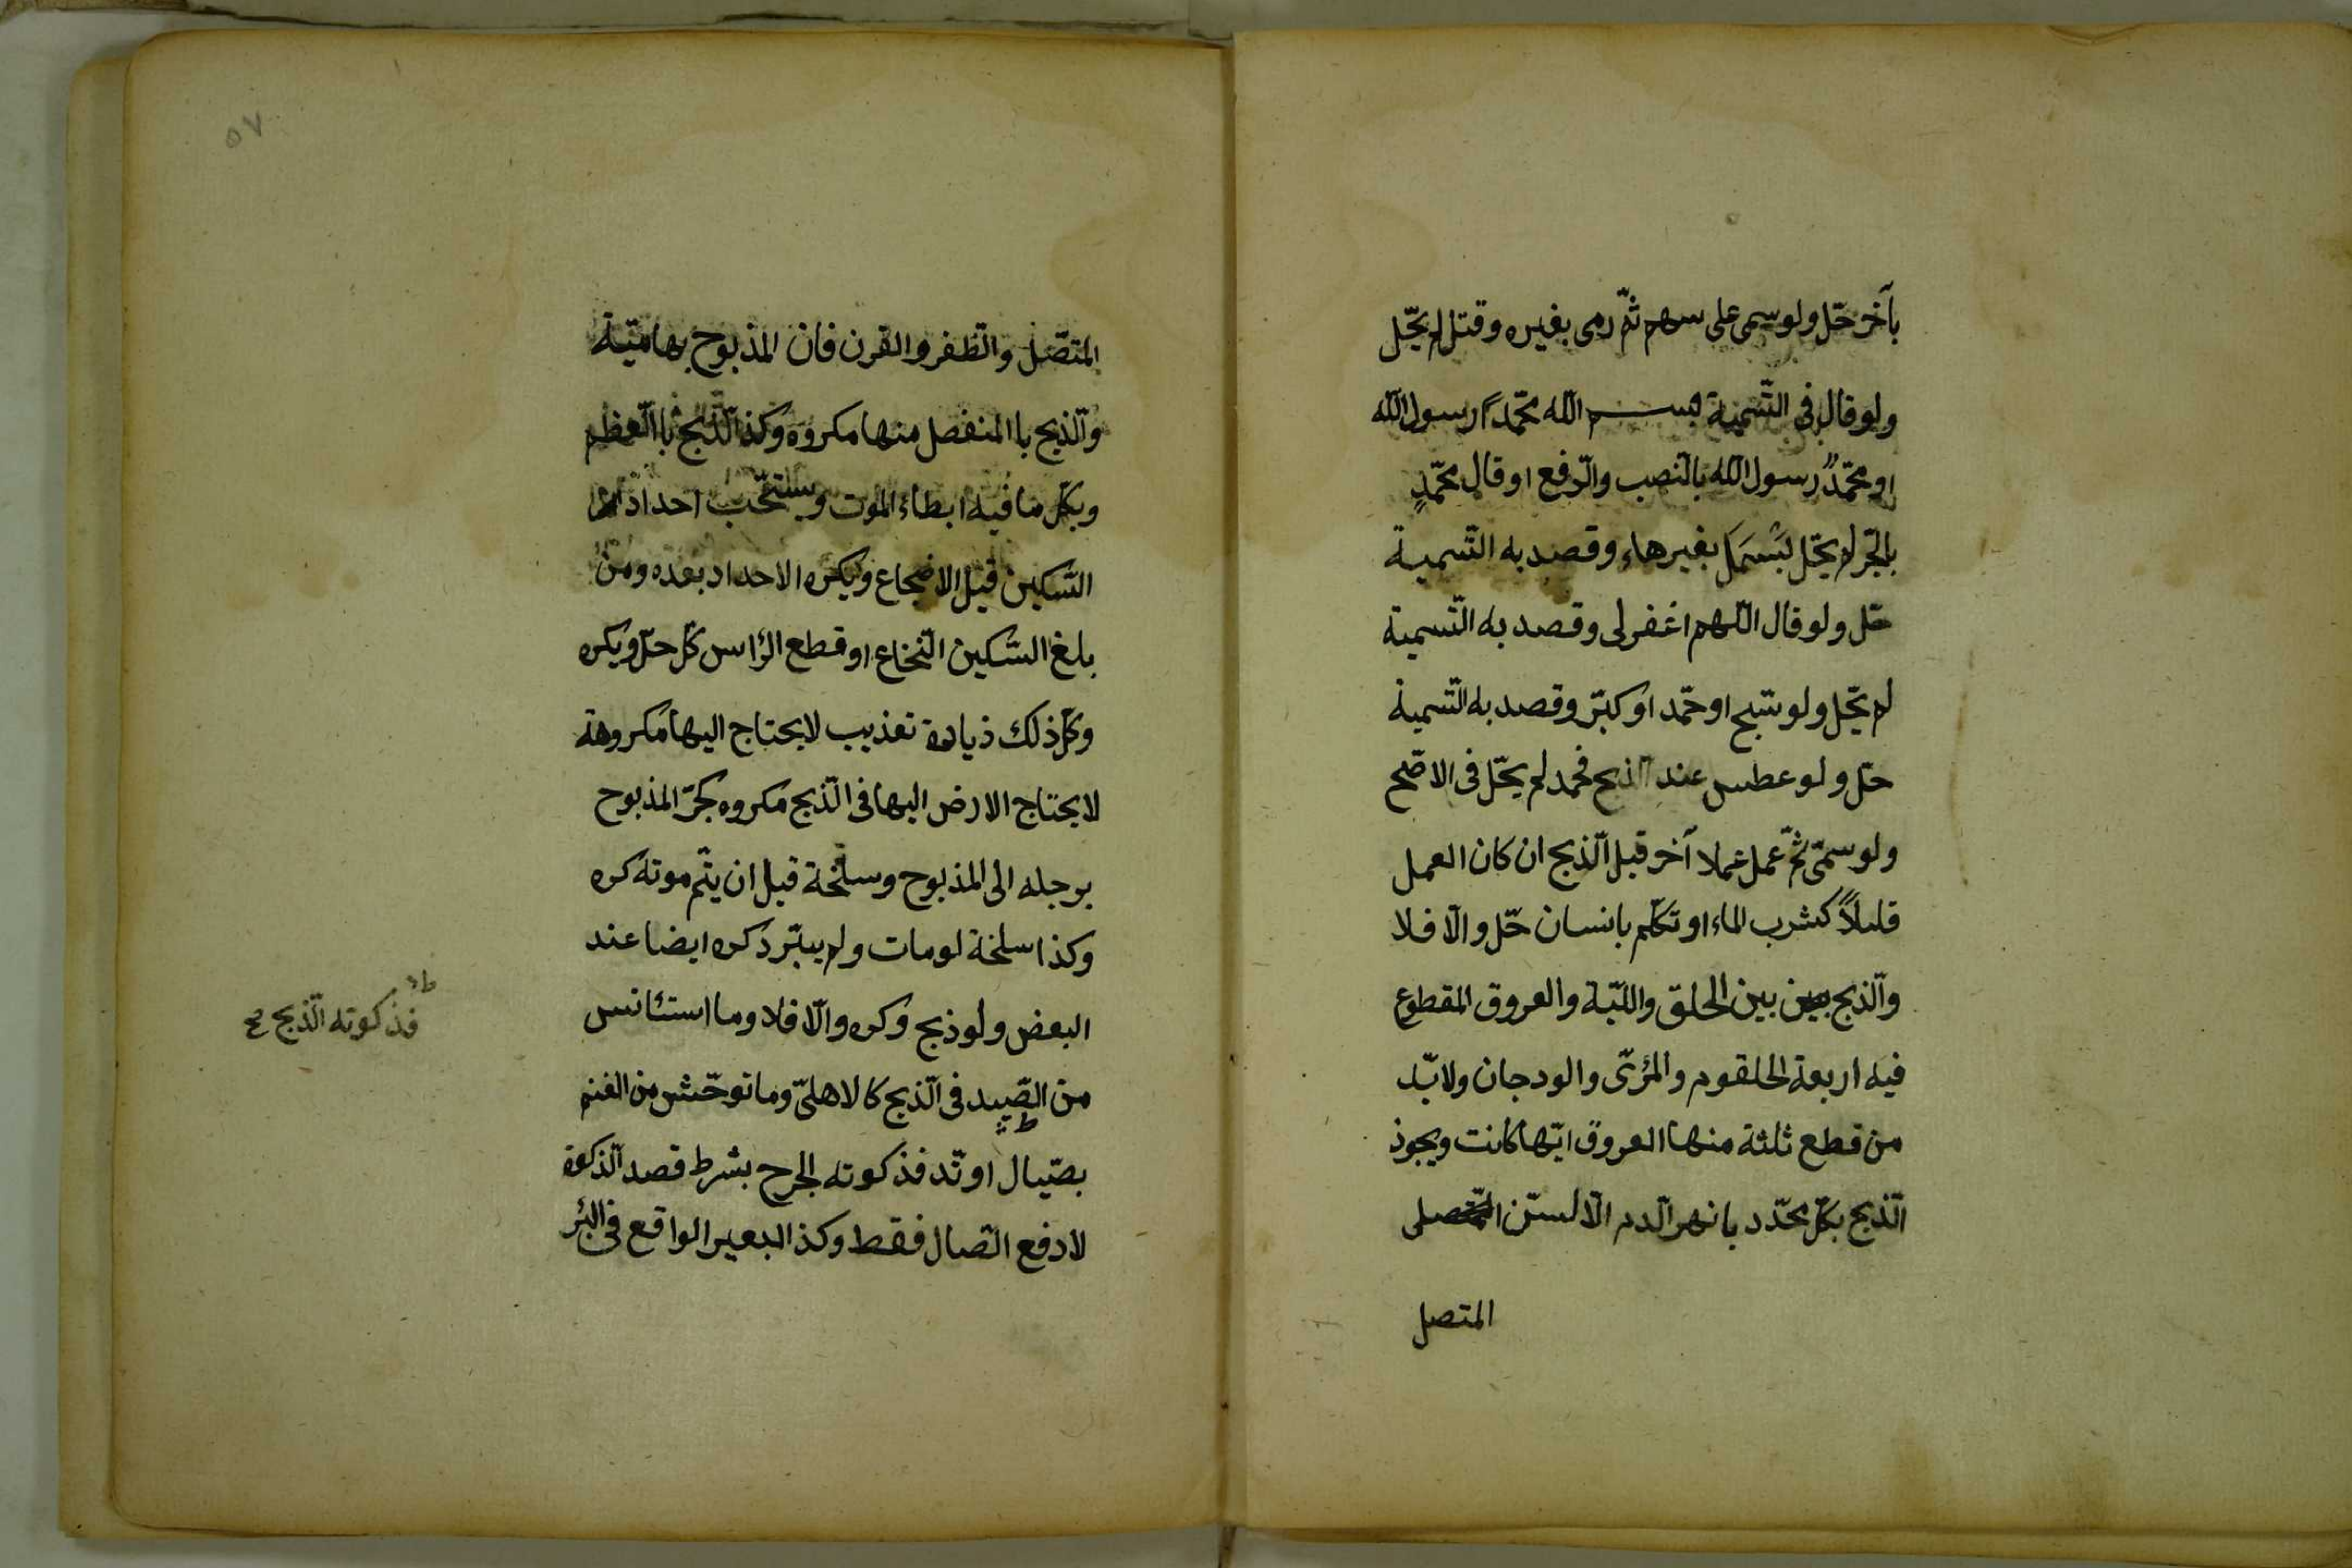 بآخر حّل ولو سمى على سهم ثمّ رمى بغيره وقتل لم يحّل
ولو قال فى التّسمية بسم اللّه محمّداً رسول اللّه
او محمّدٌ رسول اللّه بالنّصب والرّفع او قال محمّدٍ
بالجّر لم يحّل بَسْمَلَ بغيرهاء وقصد به التّسمية
حّل ولو قال اللّهم اغفرلى وقصد به التّسمية
لم يحّل ولو سّبح او حمّد او كبّر وقصد به التّسمية
حّل ولو عطس عند الذبح فحمد لم يحّل فى الاصّح
ولو سمّى ثمّ عمل عملا آخر قبل الّذبح ان كان العمل
قليلاً كشرب الماء او تكلّم بانسان حّل والّا فلا
والّذبح بين الحلق واللّبّة والعروق المقطوع
فيه اربعة الحلقوم والمرّئ والودجان ولابّد
من قطع ثلثة منها العروق ايّها كانت ويجوذ
الّذبح بكلّ محدّد بانهر الّدم الّا لسّن
المتصل
المتصّل والّظفر والقرن فان المذبوح بها ميّتة
والّذبح باالمنفصل منها مكروه وكذ الّذبح باالعظم
وبكلّ ما فيه ابطاء الموت ويستحّب احداد
السّكين قبل الاضجاع ويكره الاحداد بعده ومن
بلغ السّكين النّخاع او قطع الرّاس كّل حّل ويكره
وكلّ ذلك ذيادة تعذيب لا يحتاج اليها مكروهة
لا يحتاج الارض اليها فى الّذبح مكروه كجّر المذبوح
برجله الى المذبوح وسلخة قبل ان يتّم موته كره
وكذا سلخة لومات ولم يبّرد كره ايضا عند
البعض ولو ذبح وكره والّا فلا وما استئانس
من الصّيد فى الّذبح كالاهلىّ وما توحّش من الغنم
بصّيال او نّد فذكوته الجرح بشرط قصد الّذكوة
لا دفع الصّال فقط وكذ البعير الواقع فى البئر
فذكوته الّذبح
٥٧